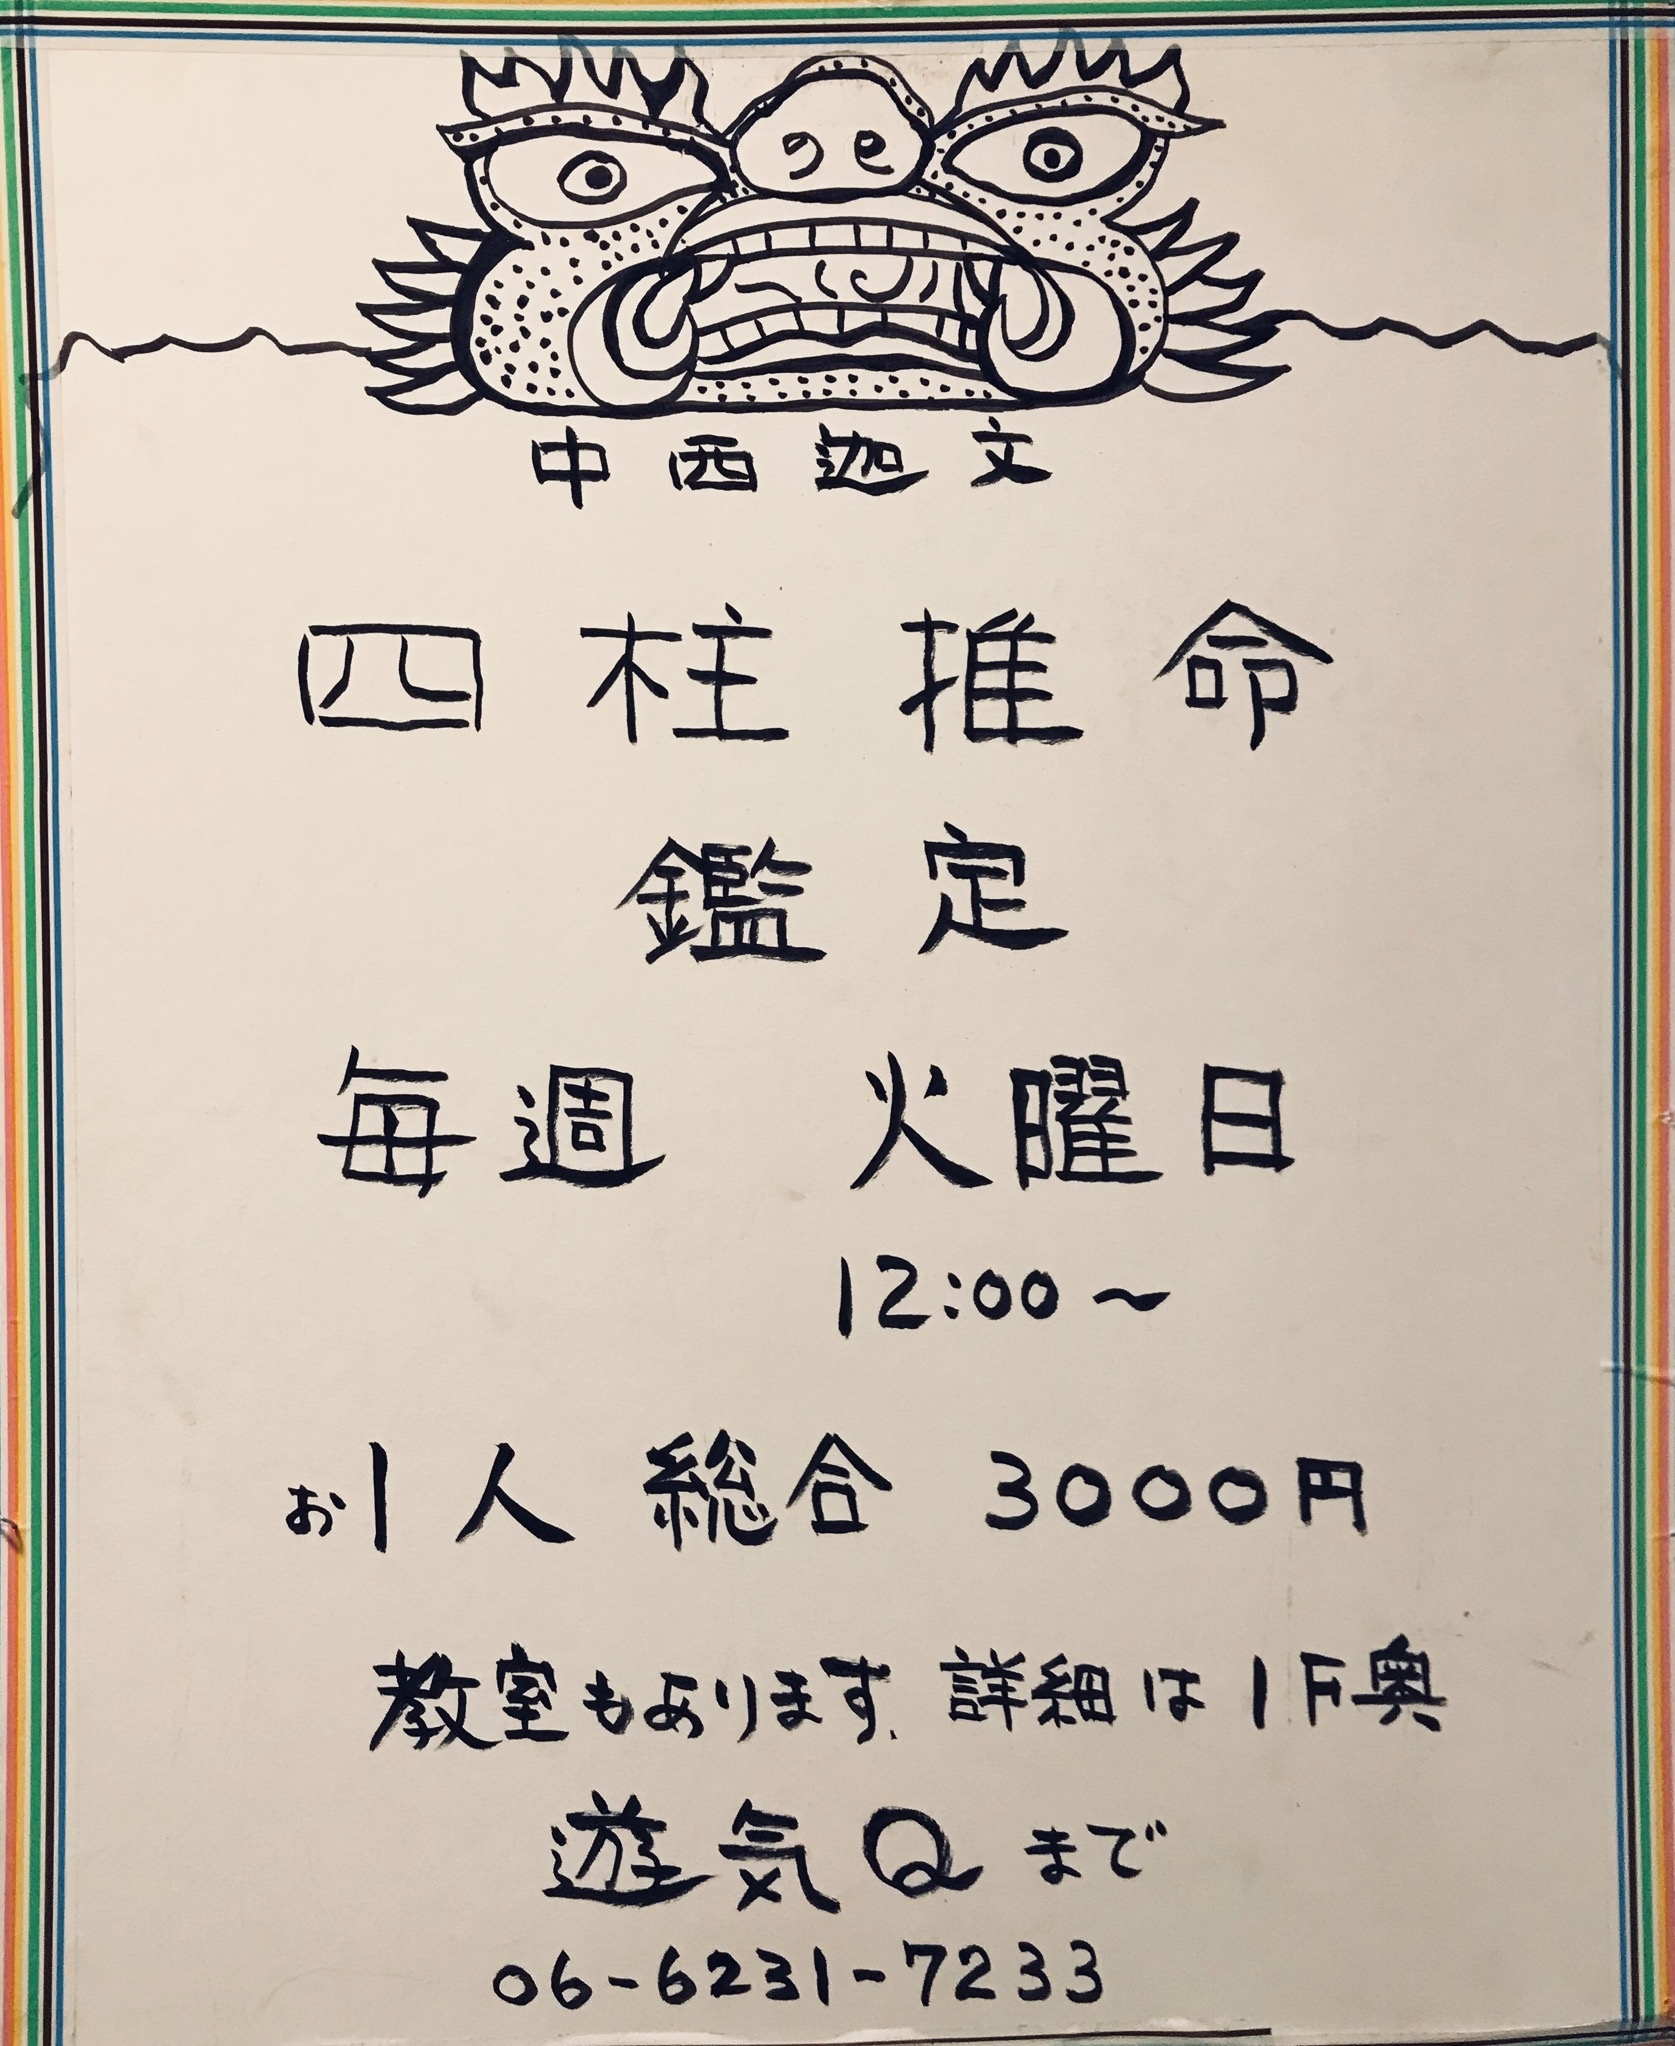 中西迦文
四柱推命
鑑定
毎週　火曜日
12:00～
お1人 総合 3000円
教室もあります、詳細は1F奥
遊気Qまで
06-6231-7233